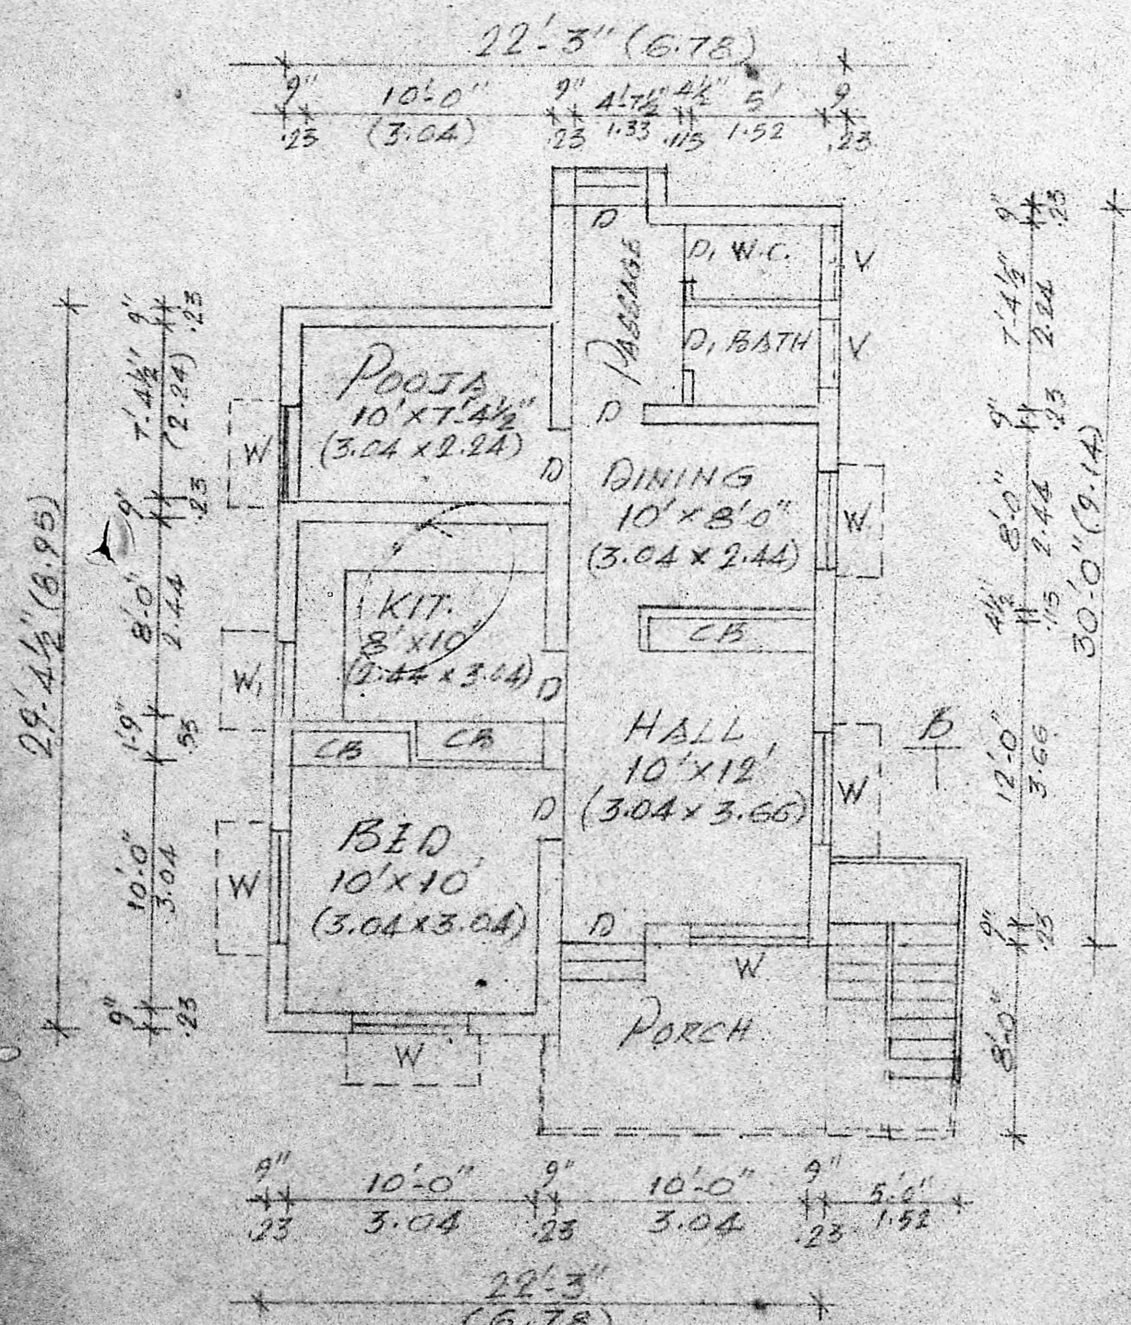 22'-3" (6.78)
9" 10'-0" 9" 4'-7½" 4½" 5' 9
.23 (3.04) .23 1.33 .115 1.52 .23
D
PASSAGE
D, W.C. V
D, BATH V
D
POOJA
10' X 7'-4½"
(3.04 X 2.24)
W
D
DINING
10' X 8'-0"
(3.04 X 2.44)
W
KIT.
8' X 10'
(2.44 X 3.04)
W,
D
CB
CB
CB
HALL
10' X 12'
(3.04 X 3.66)
W
B
BED
10' X 10'
(3.04 X 3.04)
W
D
D
W
PORCH
W
29'-4½" (8.95)
9" .23
7'-4½" (2.24)
9" .23
8'-0" 2.44
1'-9" .53
10'-0" 3.04
9" .23
9" .23
7'-4½" 2.24
9" .23
8'-0" 2.44
4½" .115
12'-0" 3.66
9" .23
8'-0"
30'-0" (9.14)
9" 10'-0" 9" 10'-0" 9" 5'-0"
.23 3.04 .23 3.04 .23 1.52
22'-3"
(6.78)